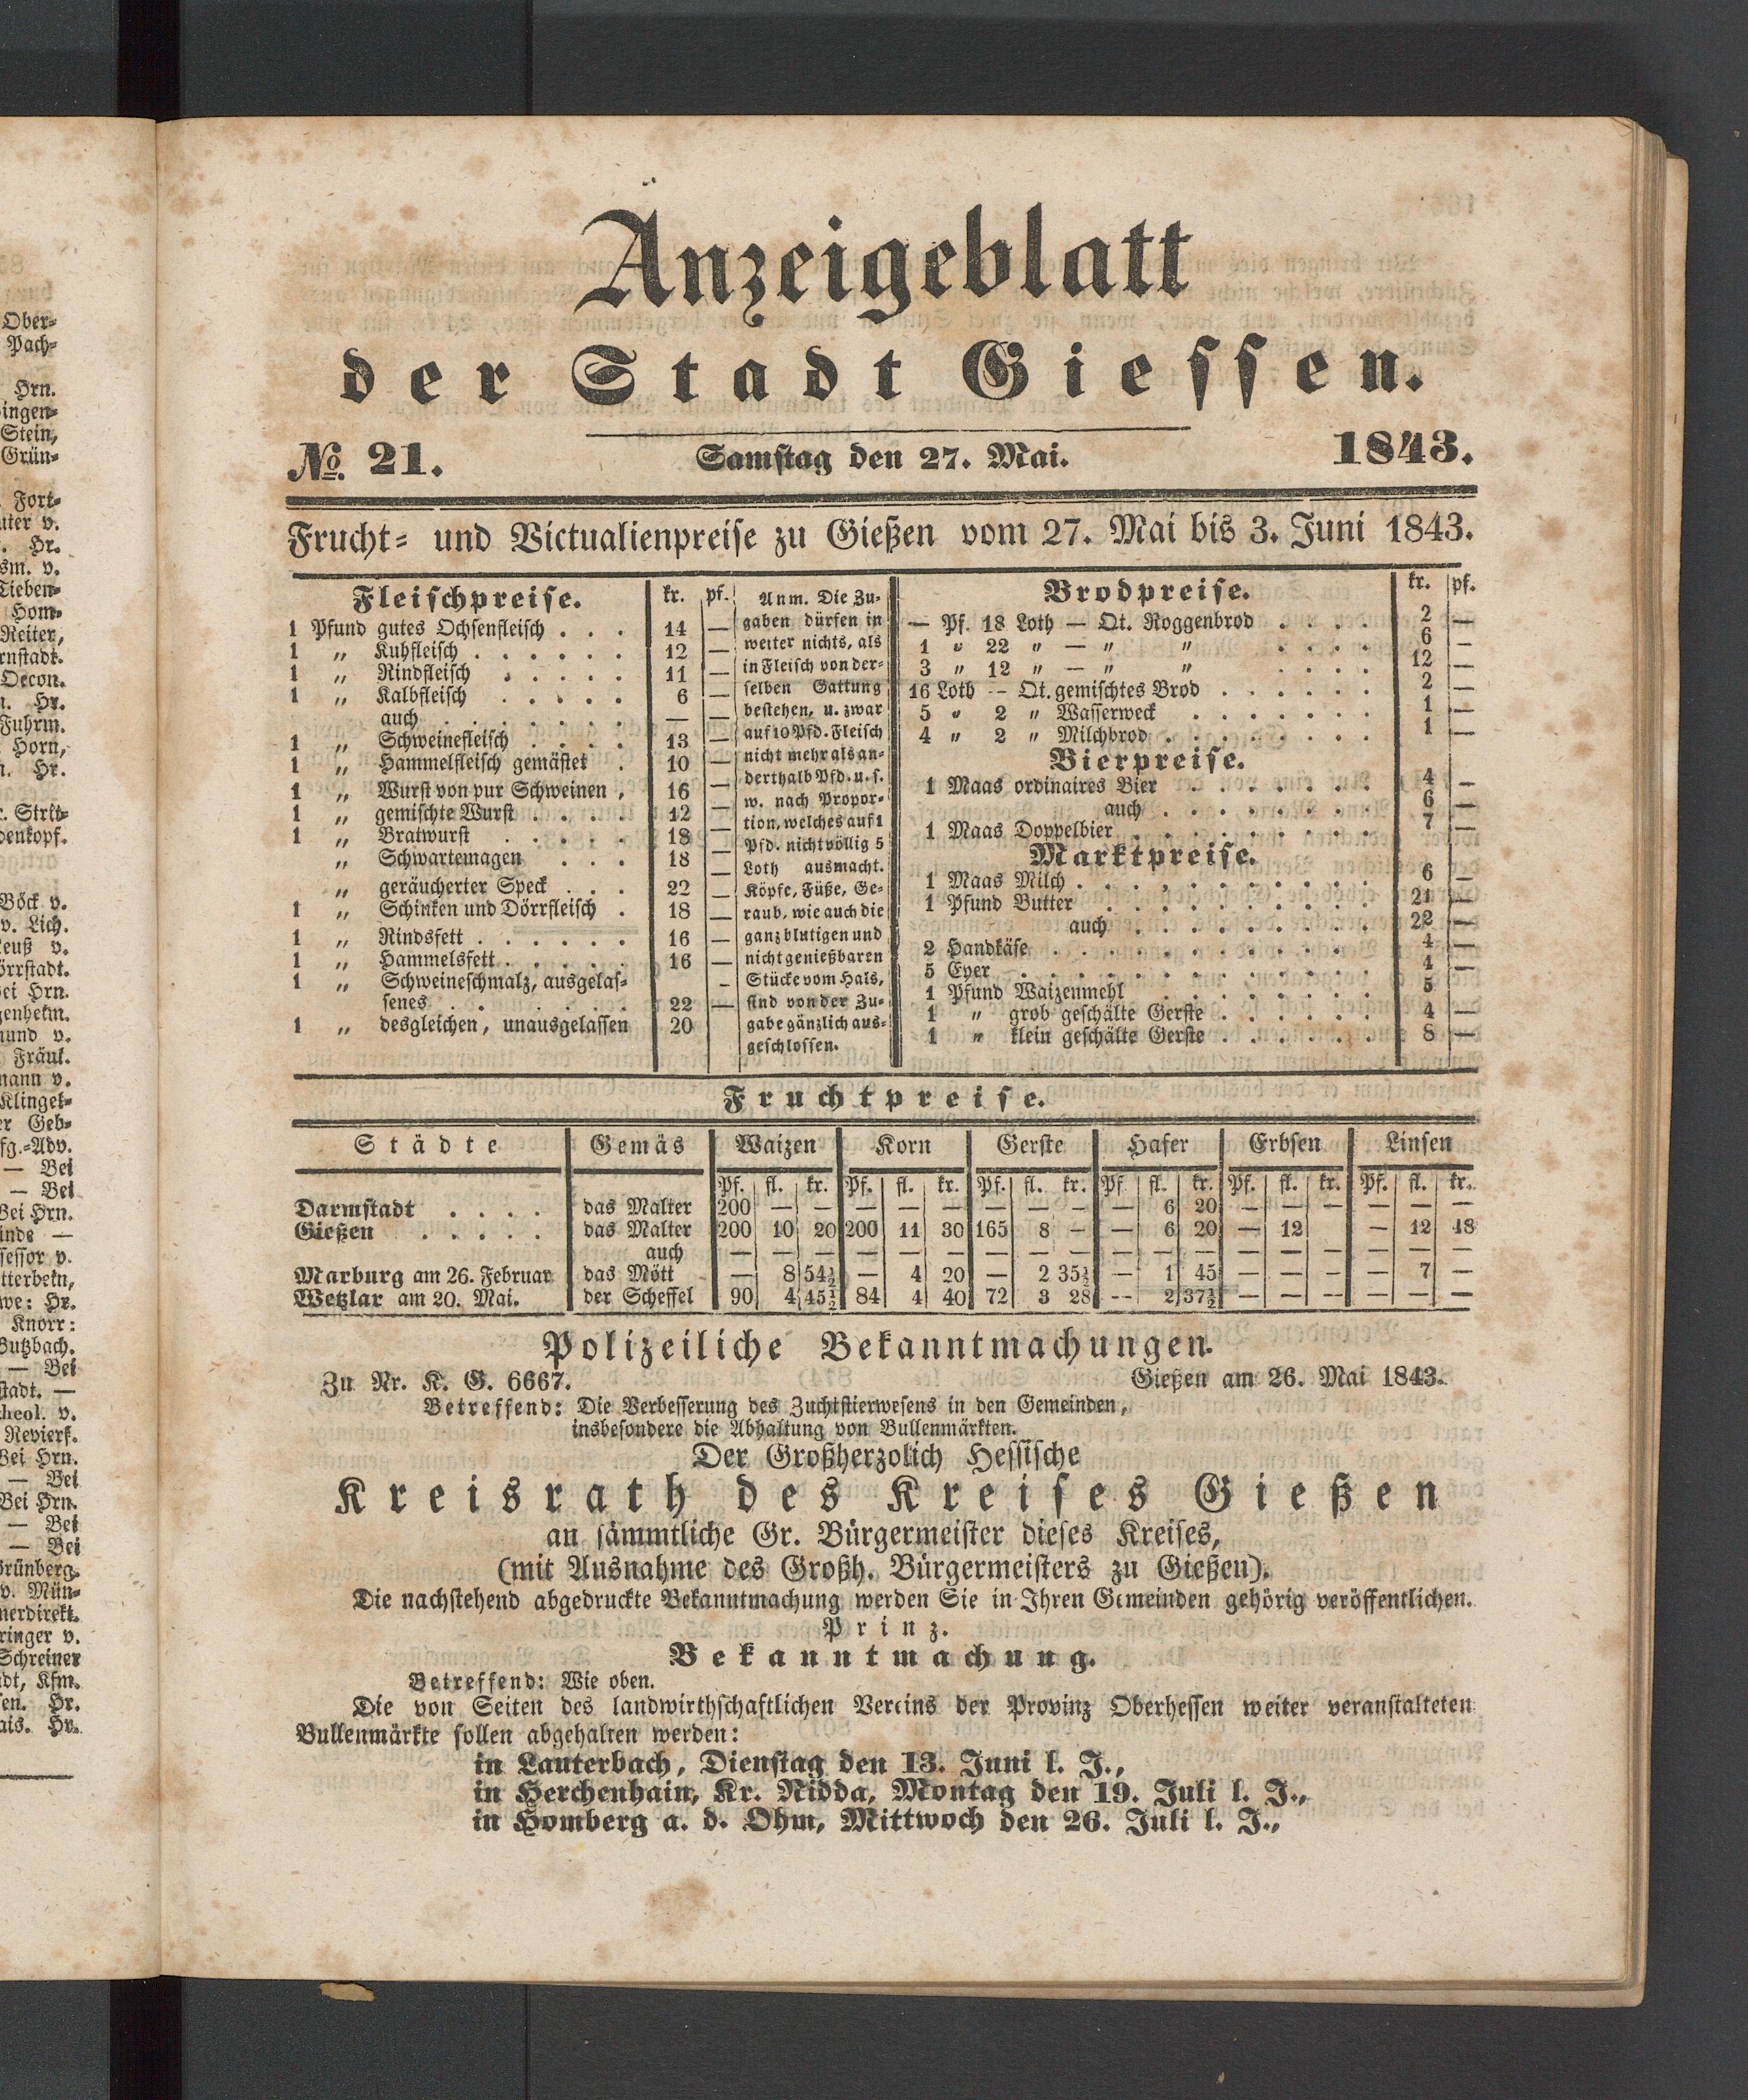 Ober-
Pach-
Hrn.
Stein,
Grün-
Fort-
Hr.
Hom-
Reiter,
Oecon.
Hr.
Fuhrm.
Horn,
Hr.
v. Lich.
Bei Hrn.
Fräul.
Klingel-
Geb-
— Bei
— Bei
Bei Hrn.
Knorr:
Butzbach.
— Bei
Bei Hrn.
— Bei
Bei Hrn.
— Bei
— Bei
Grünberg.
v. Mün-
Schreiner
Kfm.
Hr.
Anzeigeblatt
der Stadt Giessen.
No. 21. Samstag den 27. Mai. 1843.
Frucht- und Victualienpreise zu Gießen vom 27. Mai bis 3. Juni 1843.
Fleischpreise. kr. pf.
1 Pfund gutes Ochsenfleisch . . . 14 —
1 „ Kuhfleisch . . . . . . 12 —
1 „ Rindfleisch . . . . . 11 —
1 „ Kalbfleisch . . . . . 6 —
auch . . . . . . . — —
1 „ Schweinefleisch . . . . 13 —
1 „ Hammelfleisch gemästet . 10 —
1 „ Wurst von pur Schweinen , 16 —
1 „ gemischte Wurst . . . . 12 —
1 „ Bratwurst . . . . . 18 —
„ Schwartemagen . . . 18 —
„ geräucherter Speck . . . 22 —
1 „ Schinken und Dörrfleisch . 18 —
1 „ Rindsfett . . . . . . 16 —
1 „ Hammelsfett . . . . . 16 —
1 „ Schweineschmalz, ausgelas-
senes . . . . . . . 22 —
1 „ desgleichen, unausgelassen 20
Anm. Die Zu-
gaben dürfen in
weiter nichts, als
in Fleisch von der-
selben Gattung
bestehen, u. zwar
auf 10 Pfd. Fleisch
nicht mehr als an-
derthalb Pfd. u. s.
w. nach Propor-
tion, welches auf 1
Pfd. nicht völlig 5
Loth ausmacht.
Köpfe, Füße, Ge-
raub, wie auch die
ganz blutigen und
nicht genießbaren
Stücke vom Hals,
sind von der Zu-
gabe gänzlich aus-
geschlossen.
Brodpreise. kr. pf.
— Pf. 18 Loth — Qt. Roggenbrod . . . . 2 —
1 „ 22 „ — „ „ . . . . 6 —
3 „ 12 „ — „ „ . . . . 12 —
16 Loth — Qt. gemischtes Brod . . . . . . 2 —
5 „ 2 „ Wasserweck . . . . . . . 1 —
4 „ 2 „ Milchbrod . . . . . . . . 1 —
Bierpreise.
1 Maas ordinaires Bier . . . . . . . 4 —
auch . . . . . . . . 6 —
1 Maas Doppelbier . . . . . . . . . 7 —
Marktpreise.
1 Maas Milch . . . . . . . . . . . 6 —
1 Pfund Butter . . . . . . . . . . 21 —
auch . . . . . . . . . 22 —
2 Handkäse . . . . . . . . . . . 4 —
5 Eyer . . . . . . . . . . . . 4 —
1 Pfund Waizenmehl . . . . . . . . 5
1 „ grob geschälte Gerste . . . . . . 4 —
1 „ klein geschälte Gerste . . . . . . 8 —
Fruchtpreise.
Städte Gemäs Waizen Korn Gerste Hafer Erbsen Linsen
Pf. fl. kr. Pf. fl. kr. Pf. fl. kr. Pf fl. kr. Pf. fl. kr. Pf. fl. kr.
Darmstadt . . . . das Malter 200 — — — — — — — — — 6 20 — — — — — —
Gießen . . . . . das Malter 200 10 20 200 11 30 165 8 — — 6 20 — 12 — 12 18
auch — — — — — — — — — — — — — — — — — —
Marburg am 26. Februar das Mött — 8 54½ — 4 20 — 2 35½ — 1 45 — — — — 7 —
Wetzlar am 20. Mai. der Scheffel 90 4 45½ 84 4 40 72 3 28 — 2 37½ — — — — — —
Polizeiliche Bekanntmachungen.
Zu Nr. K. G. 6667. Gießen am 26. Mai 1843.
Betreffend: Die Verbesserung des Zuchtstierwesens in den Gemeinden,
insbesondere die Abhaltung von Bullenmärkten.
Der Großherzolich Hessische
Kreisrath des Kreises Gießen
an sämmtliche Gr. Bürgermeister dieses Kreises,
(mit Ausnahme des Großh. Bürgermeisters zu Gießen).
Die nachstehend abgedruckte Bekanntmachung werden Sie in Ihren Gemeinden gehörig veröffentlichen.
Prinz.
Bekanntmachung.
Betreffend: Wie oben.
Die von Seiten des landwirthschaftlichen Vereins der Provinz Oberhessen weiter veranstalteten
Bullenmärkte sollen abgehalten werden:
in Lauterbach, Dienstag den 13. Juni l. J.,
in Herchenhain, Kr. Nidda, Montag den 19. Juli l. J.,
in Homberg a. d. Ohm, Mittwoch den 26. Juli l. J.,